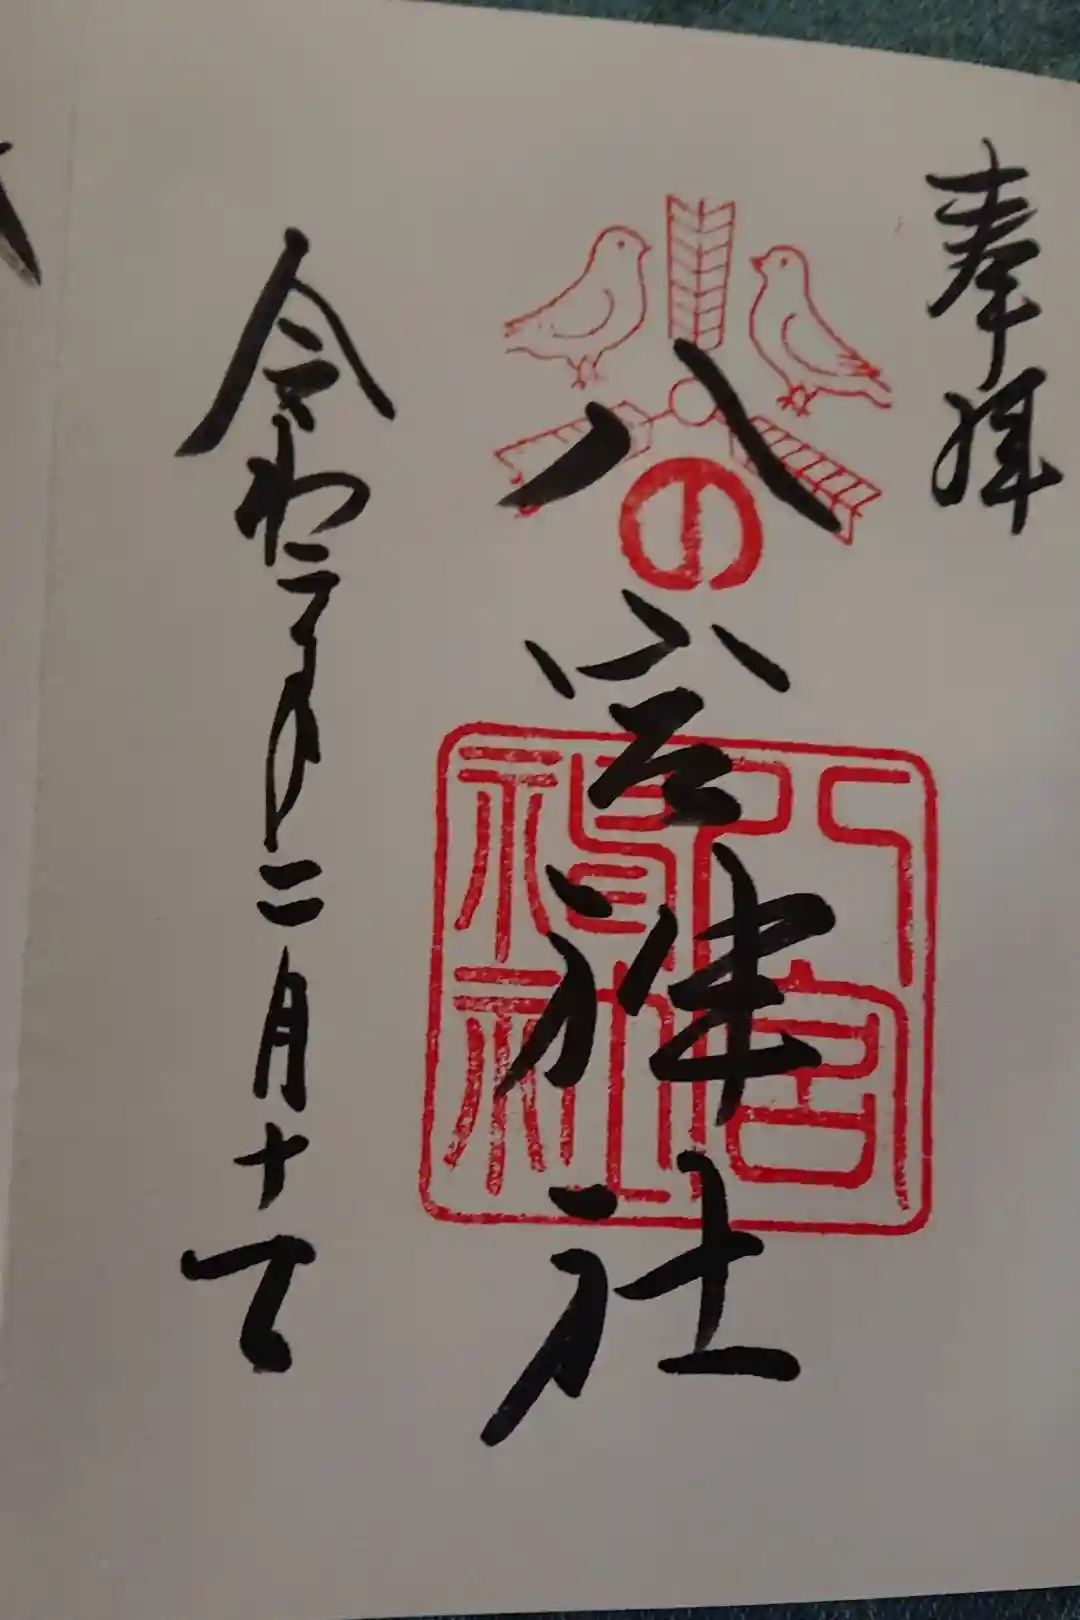 奉拝
八宮神社
八宮神社
令和二年二月十一日